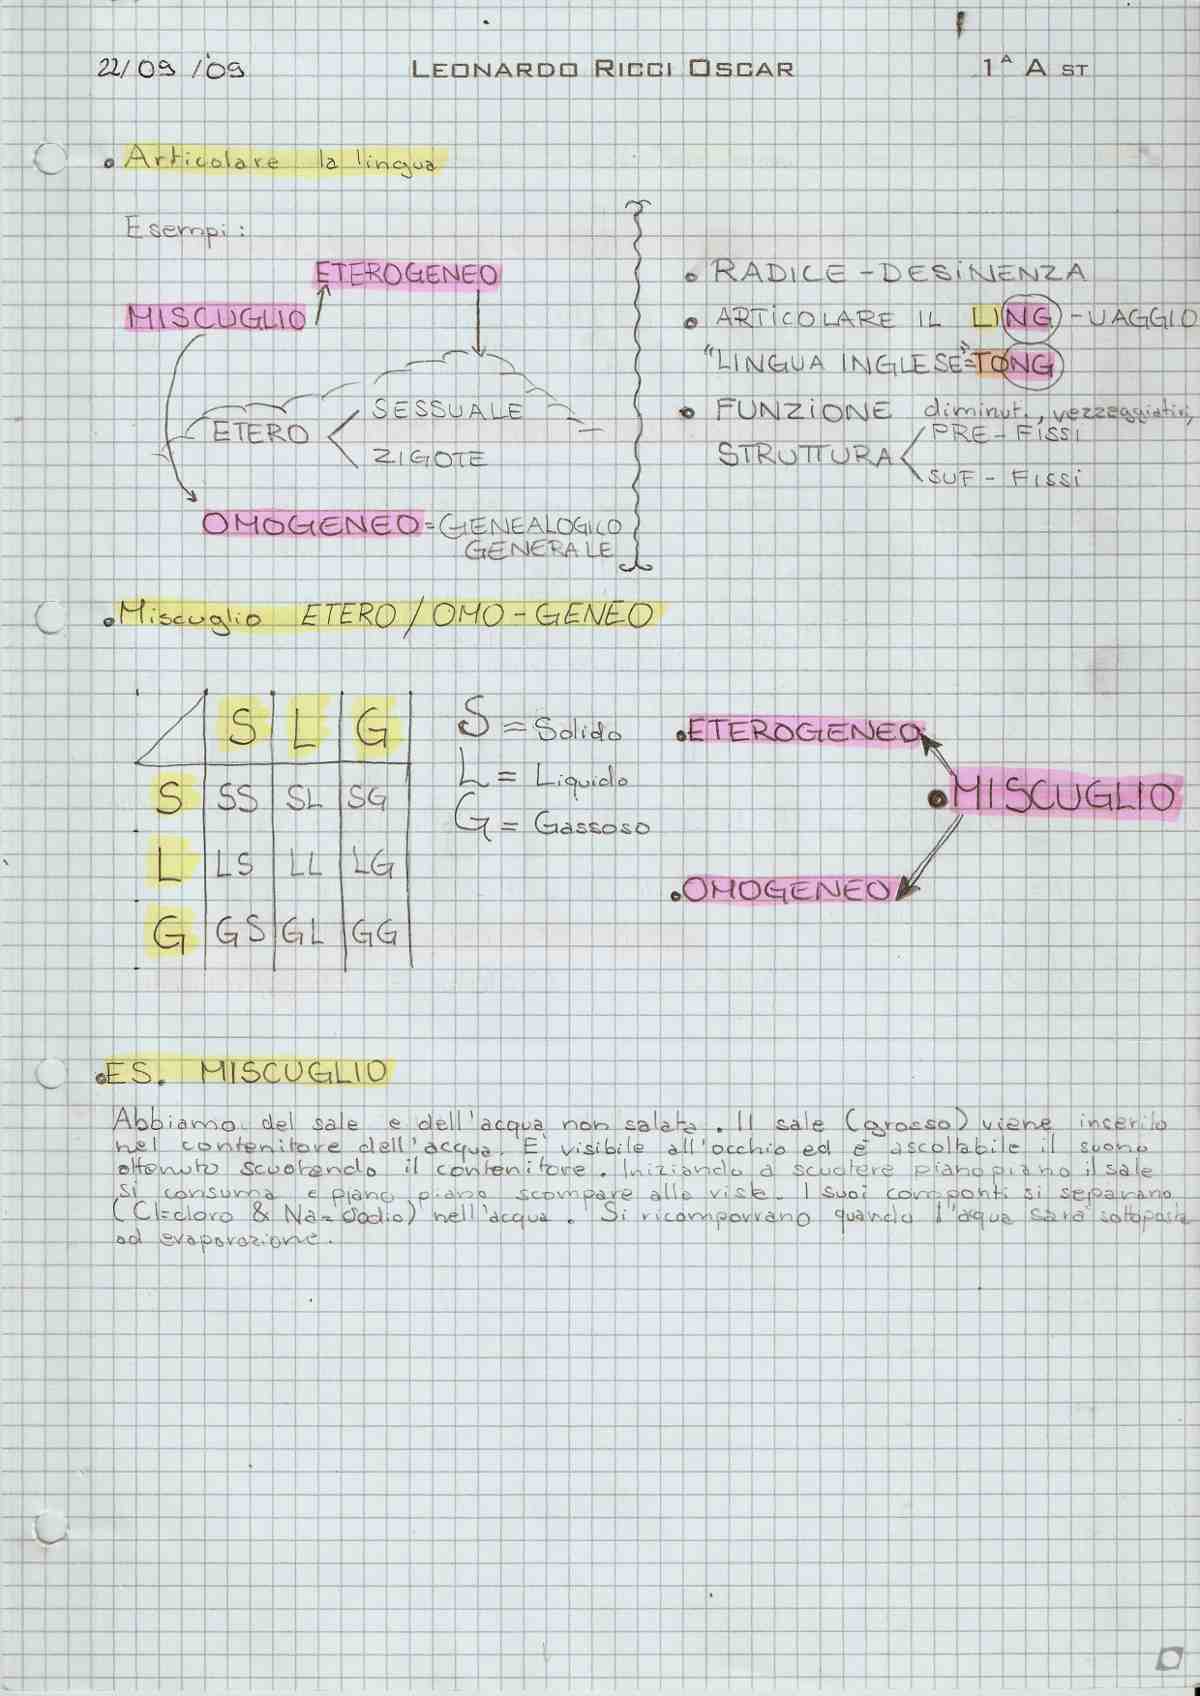 22/09/'09 LEONARDO RICCI OSCAR 1ª A ST
• Articolare la lingua
Esempi:
ETEROGENEO
MISCUGLIO
SESSUALE
ETERO
ZIGOTE
OMOGENEO = GENEALOGICO
GENERALE
• RADICE - DESINENZA
• ARTICOLARE IL LING - UAGGIO
"LINGUA INGLESE" = TONG
• FUNZIONE diminut., vezzeggiativi,
PRE - FISSI
STRUTTURA
SUF - FISSI
• Miscuglio ETERO / OMO - GENEO
S L G
S SS SL SG
L LS LL LG
G GS GL GG
S = Solido
L = Liquido
G = Gassoso
• ETEROGENEO
• MISCUGLIO
• OMOGENEO
• ES. MISCUGLIO
Abbiamo del sale e dell'acqua non salata. Il sale (grosso) viene incerito
nel contenitore dell'acqua. E' visibile all'occhio ed è ascoltabile il suono
ottenuto scuotendo il contenitore. Iniziando a scuotere piano piano il sale
si consuma e piano piano scompare alla vista. I suoi componti si separano
(Cl=cloro & Na=Sodio) nell'acqua. Si ricomporrano quando l'acqua sarà sottoposta
ad evaporazione.